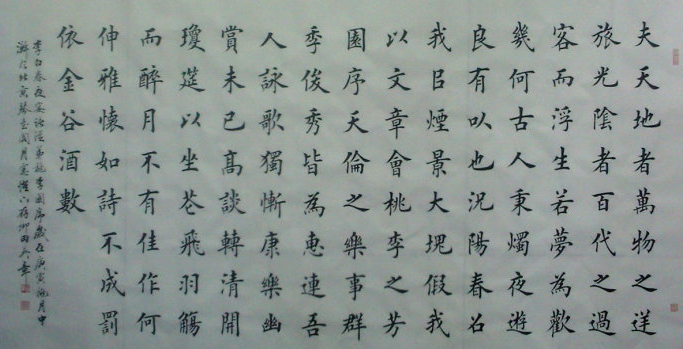 夫天地者萬物之逆
旅光陰者百代之過
客而浮生若夢為歡
幾何古人秉燭夜遊
良有㕥也況陽春召
我㠯煙景大塊假我
以文章會桃李之芳
園序天倫之樂事群
季俊秀皆為惠連吾
人詠歌獨慚康樂幽
賞未已高談轉清開
瓊筵以坐花飛羽觴
而醉月不有佳作何
伸雅懷如詩不成罰
依金谷酒數
李白春夜宴諸從弟桃李園序歲在庚寅桃月中